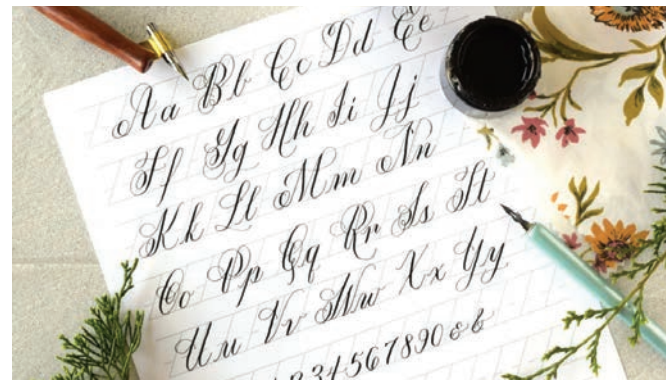 Aa Bb Cc Dd Ee
Ff Gg Hh Ii Jj
Kk Ll Mm Nn
Oo Pp Qq Rr Ss Tt
Uu Vv Ww Xx Yy
234567890 & &